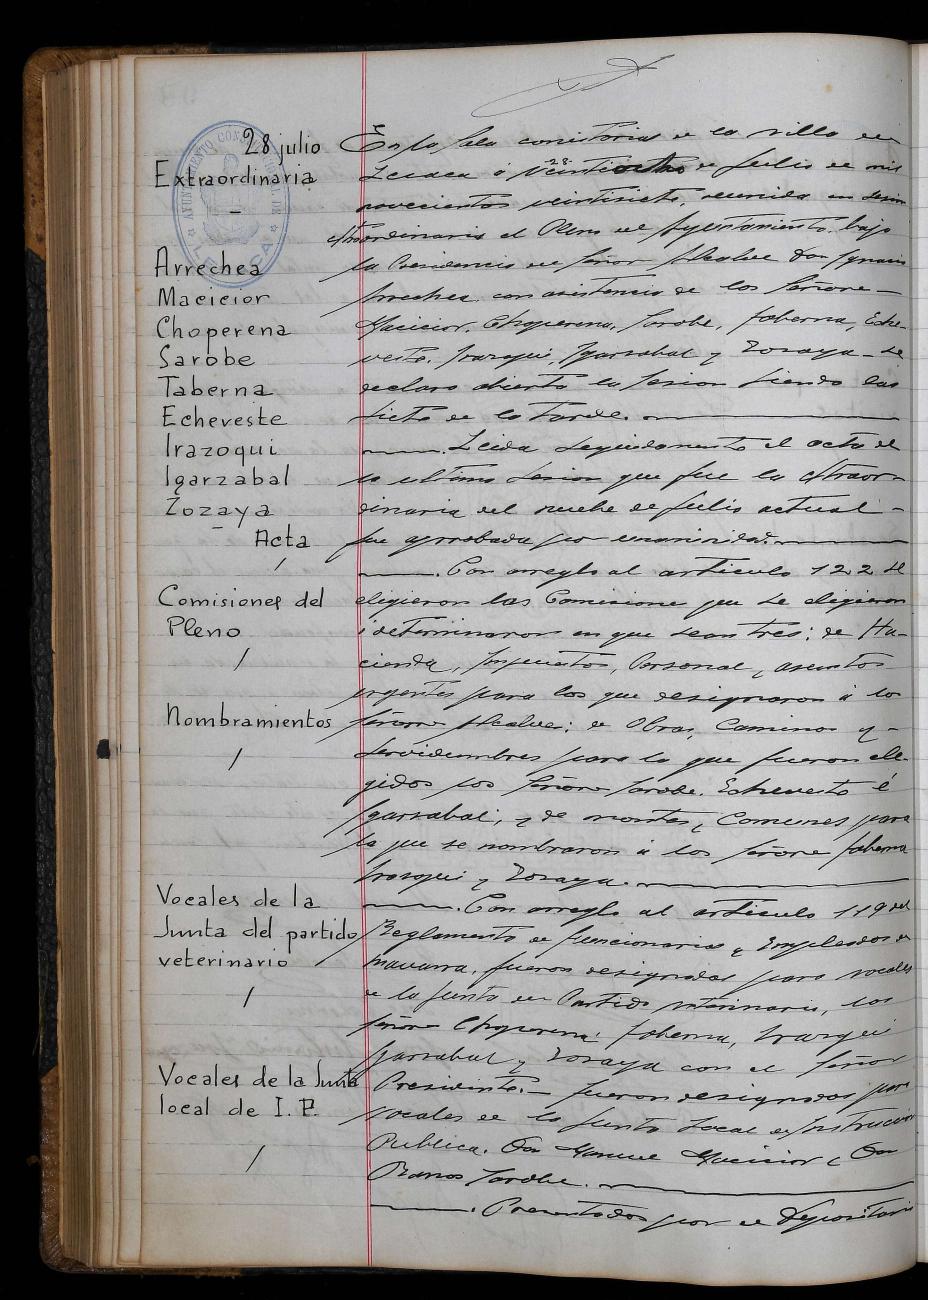 28 julio
Extraordinaria
Arrechea
Macicior
Choperena
Sarobe
Taberna
Echeveste
Irazoqui
Igarzabal
Zozaya
Acta
Comisiones del
Pleno
Nombramientos
Vocales de la
Junta del partido
veterinario
Vocales de la Junta
local de I. P.
En la Sala consistorial de la villa de
Lesaca á veintiocho 28 de Julio de mil
novecientos veintisiete, reunido en sesion
extraordinaria el Pleno del Ayuntamiento bajo
la Presidencia del Señor Alcalde Don Ignacio
Arrechea con asistencia de los Señores
Macicior, Choperena, Sarobe, Taberna, Eche-
veste, Irazoqui, Igarzabal y Zozaya se
declaro abierta la Sesion siendo las
siete de la tarde.
Leida seguidamente el acta de
la ultima sesion que fue la extraor-
dinaria del nueve de Julio actual
fue aprobada por unanimidad.
Con arreglo al articulo 122 se
eligieron las Comisiones que se eligieron
i determinaron en que sean tres: de Ha-
cienda, Impuestos, Personal y asuntos
urgentes para los que designaron á los
Señores Alcalde; de Obras, Caminos y
Servidumbres para la que fueron ele-
gidos los Señores Sarobe, Echeveste é
Igarzabal, y de montes y Comunes para
la que se nombraron á los Señores Taberna
Irazoqui y Zozaya.
Con arreglo al articulo 119 del
Reglamento de funcionarios y Empleados de
Navarra, fueron designados para vocales
de la Junta del Partido veterinario, los
Señores Choperena, Taberna, Irazoqui
Igarzabal y Zozaya con el Señor
Presidente. Fueron designados para
vocales de la Junta Local de Instruccion
Publica, Don Manuel Macicior y Don
Ramos Sarobe.
Presentados por el Depositario
AYUNTAMIENTO CONSTITUCIONAL DE
LESACA